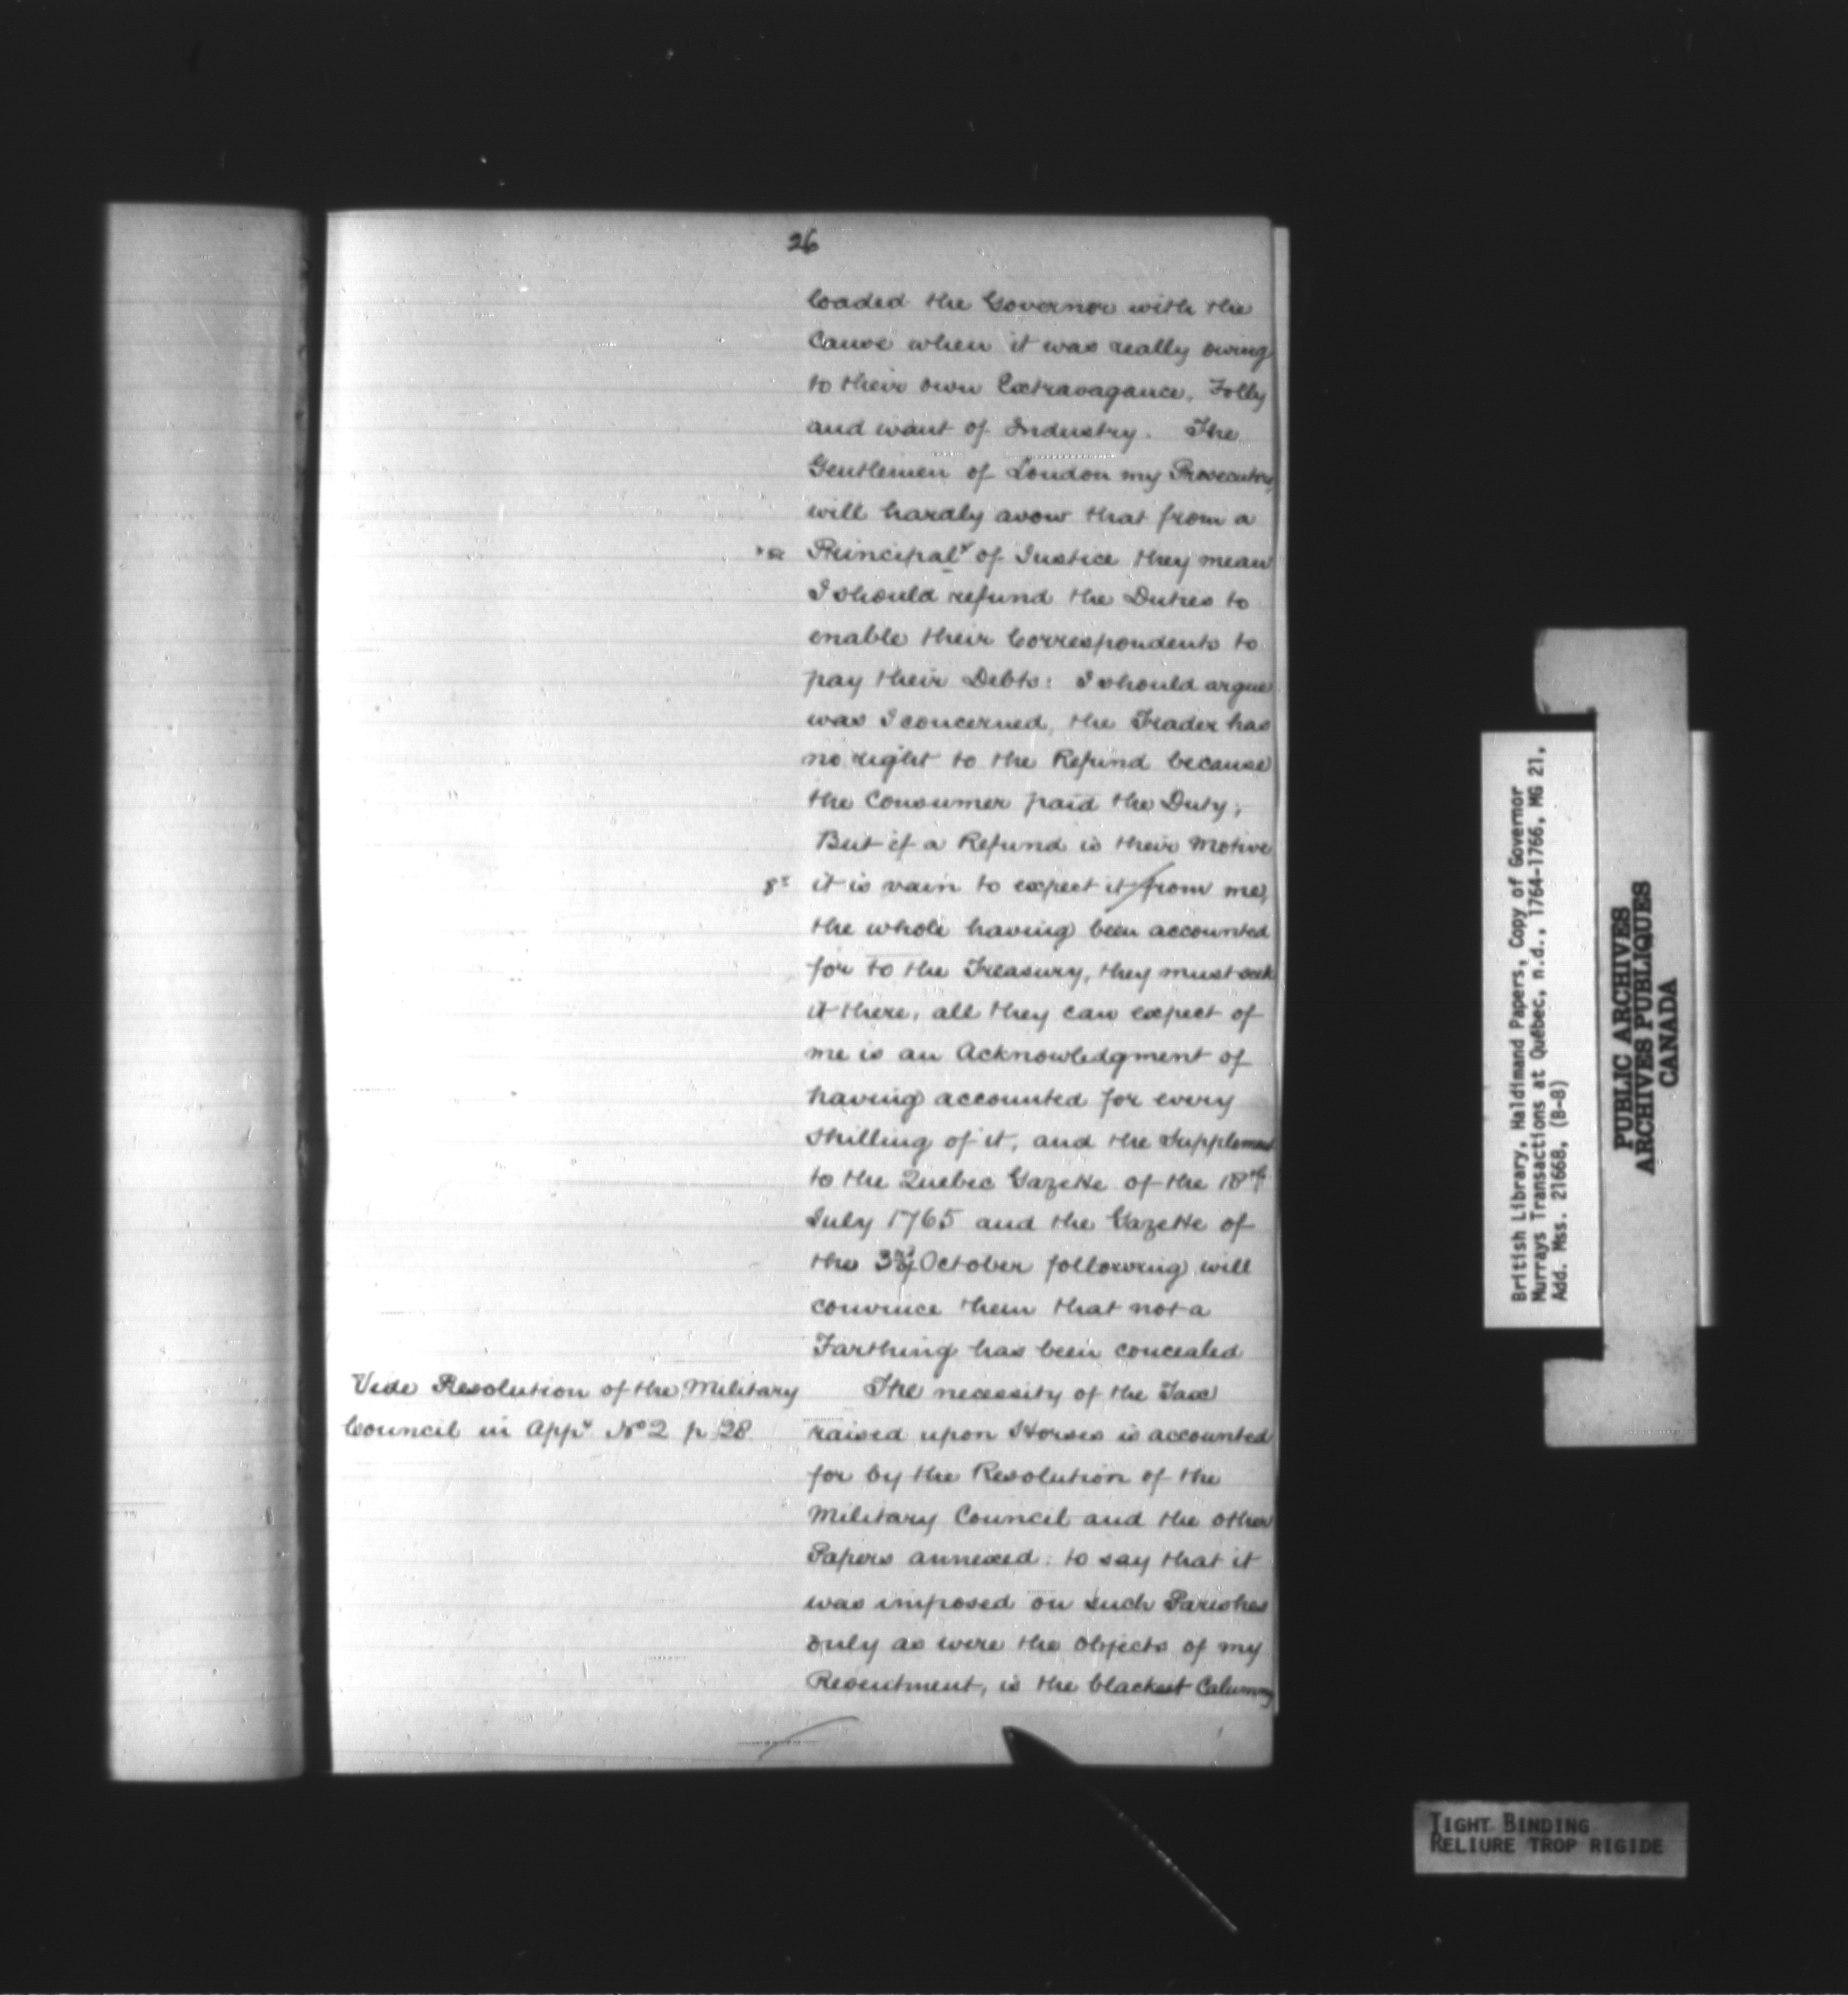 26
loaded the Governor with the
Cause when it was really owing
to their own Extravagance, Folly
and want of Industry. The
Gentlemen of London my Prosecutors
will hardly avow that from a
Principal of Justice they mean
I should refund the Duties to
enable their Correspondents to
pay their Debts: I should argue
was I concerned, the Trader has
no right to the Refund because
the Consumer paid the Duty;
But if a Refund is their Motive
it is vain to expect it from me,
the whole having been accounted
for to the Treasury, they must seek
it there, all they can expect of
me is an Acknowledgment of
having accounted for every
Shilling of it, and the Supplement
to the Quebec Gazette of the 18th
July 1765 and the Gazette of
the 3rd October following will
convince them that not a
Farthing has been concealed
Vide Resolution of the Military
Council in Appx No 2 p 28
The necessity of the Tax
raised upon Horses is accounted
for by the Resolution of the
Military Council and the other
Papers annexed: to say that it
was imposed on such Parishes
only as were the Objects of my
Resentment, is the blackest Calumny
British Library, Haldimand Papers, Copy of Governor
Murrays Transactions at Québec, n.d., 1764-1766, MG 21,
Add. Mss. 21668, (B-8)
PUBLIC ARCHIVES
ARCHIVES PUBLIQUES
CANADA
TIGHT BINDING
RELIURE TROP RIGIDE